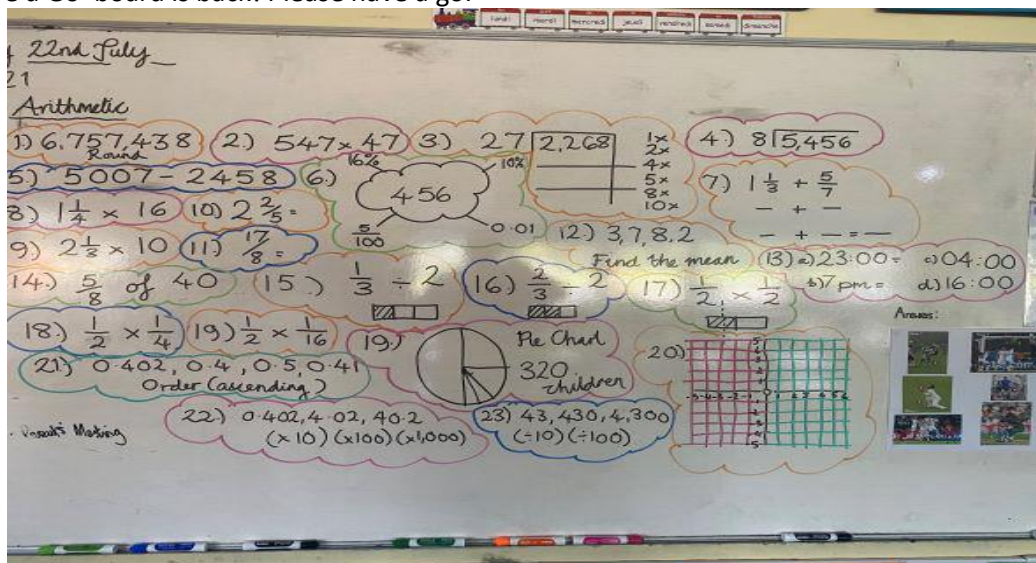 lundi mardi mercredi jeudi vendredi samedi dimanche
22nd July
21
Arithmetic
1.) 6,757,438
Round
2.) 547 × 47
3.) 27 2,268
1x
2x
4x
5x
8x
10x
4.) 8 5,456
5.) 5007 - 2458
6.) 456
16%
10%
5/100
0.01
7) 1 1/3 + 5/7
- + -
- + - = -
8) 1 1/4 × 16
10) 2 2/5 =
9.) 2 1/3 × 10
11) 17/8 =
12.) 3,7,8,2
Find the mean
13) a) 23:00=
b) 7pm=
c) 04:00
d) 16:00
14.) 5/8 of 40
15.) 1/3 ÷ 2
16) 2/3 ÷ 2
17) 1/2 × 1/2
18.) 1/2 × 1/4
19) 1/2 × 1/16
19.) Pie Chart
320
children
20)
21) 0.402, 0.4, 0.5, 0.41
Order (ascending)
22.) 0.402, 4.02, 40.2
(×10) (×100) (×1,000)
23) 43, 430, 4,300
(÷10) (÷100)
Answers:
Meeting